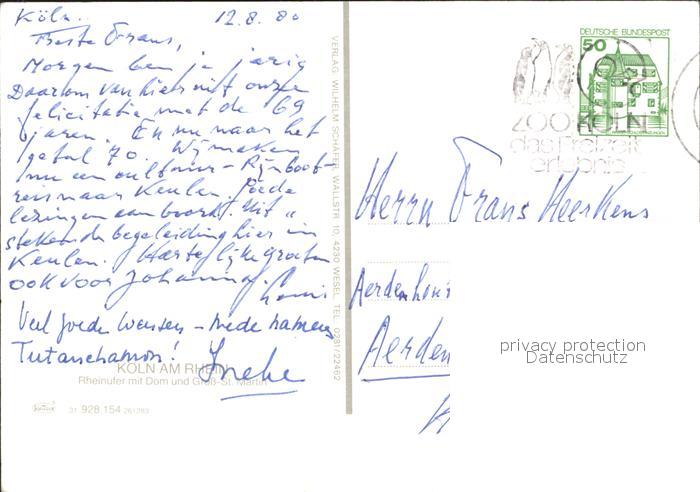 Köln. 12.8.80
Beste Frans,
Morgen ben je jarig
Daarom van hier uit onze
felicitatie met de 69
jaren. En nu naar het
getal 70. Wij maken
nu een cultuur-Rijnboot-
reis naar Keulen. Goede
lezingen aan boord. Uit-
stekende begeleiding hier in
Keulen. Hartelijke groeten
ook voor Johanna.
Louis
Veel goede wensen - mede namens
Tutanchamon!
Ineke
KÖLN AM RHEIN
Rheinufer mit Dom und Groß-St. Martin
31 928.154 261283
VERLAG WILHELM SCHÄFER, WALLSTR. 10, 4230 WESEL, TEL. 0281/22462
DEUTSCHE BUNDESPOST
50
ZOO KÖLN
das Freizeit
erlebnis
Herrn Frans Heerkens
Aerdenhout
Aerden
privacy protection
Datenschutz